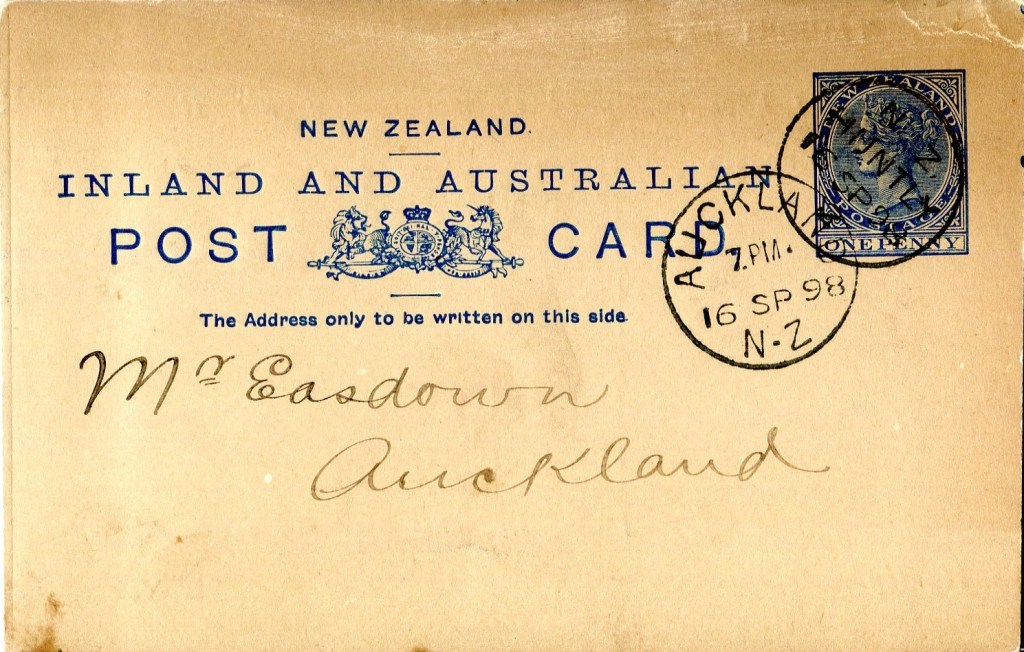 NEW ZEALAND.
INLAND AND AUSTRALIAN
POST CARD
The Address only to be written on this side.
NEW ZEALAND
POSTAGE
ONE PENNY
HUNTLY
N.Z
SP
AUCKLAND
7. PM.
16 SP 98
N-Z
Mr Easdown
Auckland